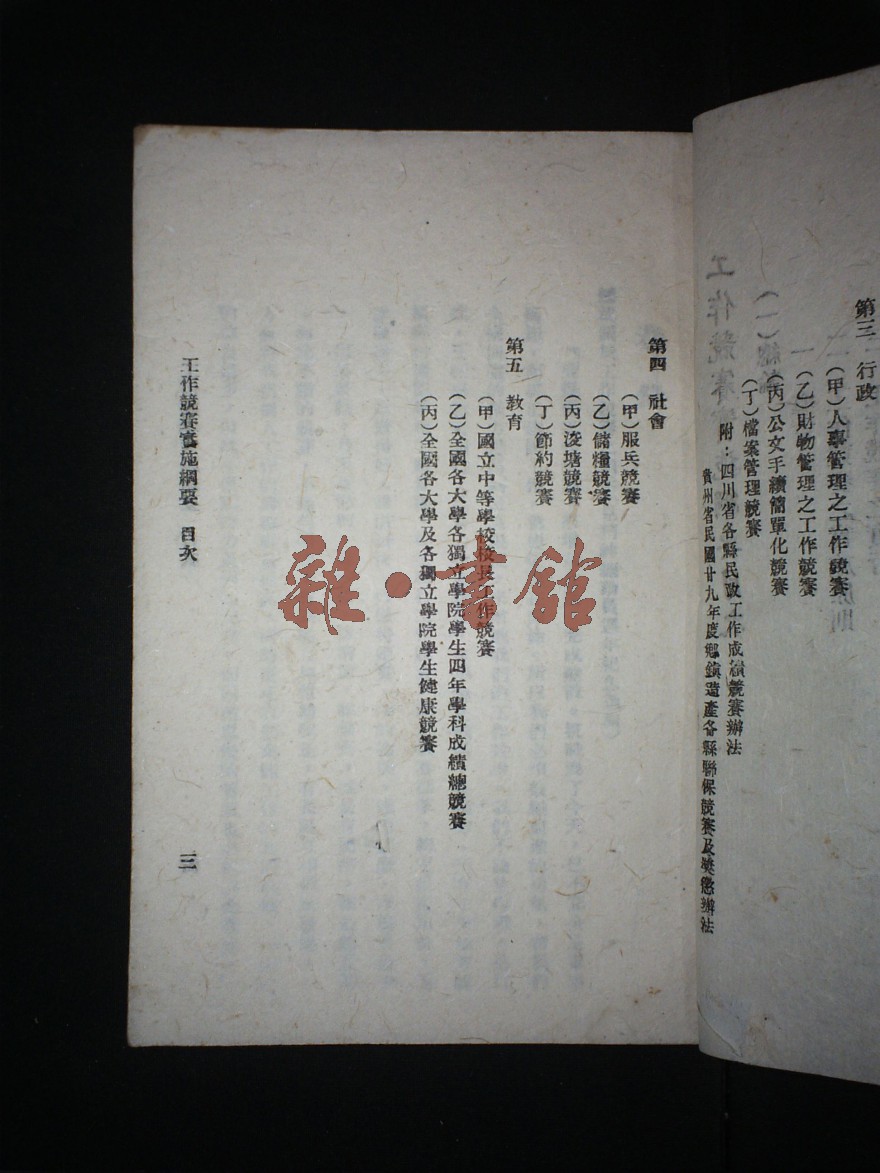 第三 行政
(甲)人事管理之工作競賽
(乙)財物管理之工作競賽
(丙)公文手續簡單化競賽
(丁)檔案管理競賽
附：四川省各縣民政工作成績競賽辦法
貴州省民國廿九年度鄉鎮造產各縣聯保競賽及獎懲辦法
第四 社會
(甲)服兵競賽
(乙)儲糧競賽
(丙)浚塘競賽
(丁)節約競賽
第五 教育
(甲)國立中等學校校長工作競賽
(乙)全國各大學各獨立學院學生四年學科成績總競賽
(丙)全國各大學及各獨立學院學生健康競賽
工作競賽實施綱要 目次
三
雜·書館